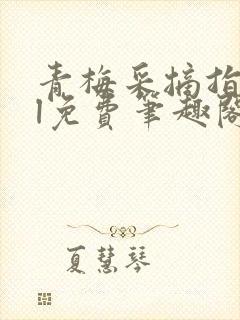 青梅采摘指
l免费笔趣阁
夏慧琴